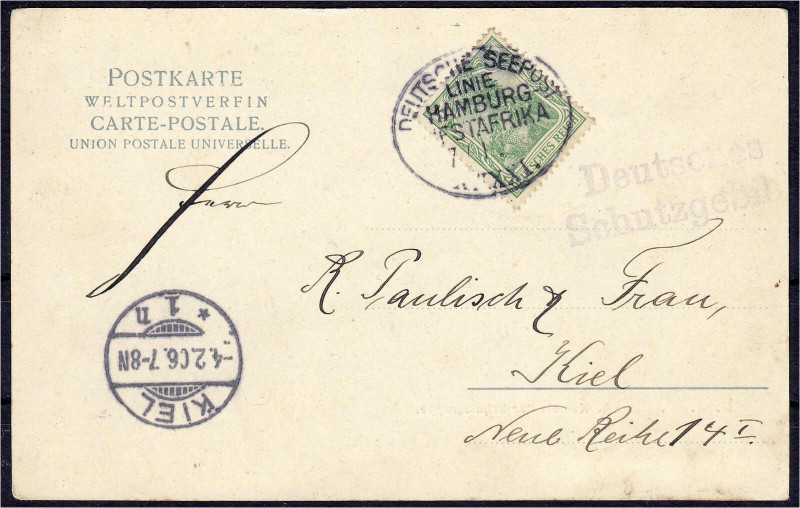 POSTKARTE
WELTPOSTVERFIN
CARTE-POSTALE.
UNION POSTALE UNIVERSELLE.
DEUTSCHE SEEPOST
LINIE
HAMBURG
OSTAFRIKA
Deutsches
Schutzgebi
Herrn
R. Paulisch & Frau,
Kiel
Neue Reihe 14 I.
* 1 n
-4.2.06.7-8N
KIEL